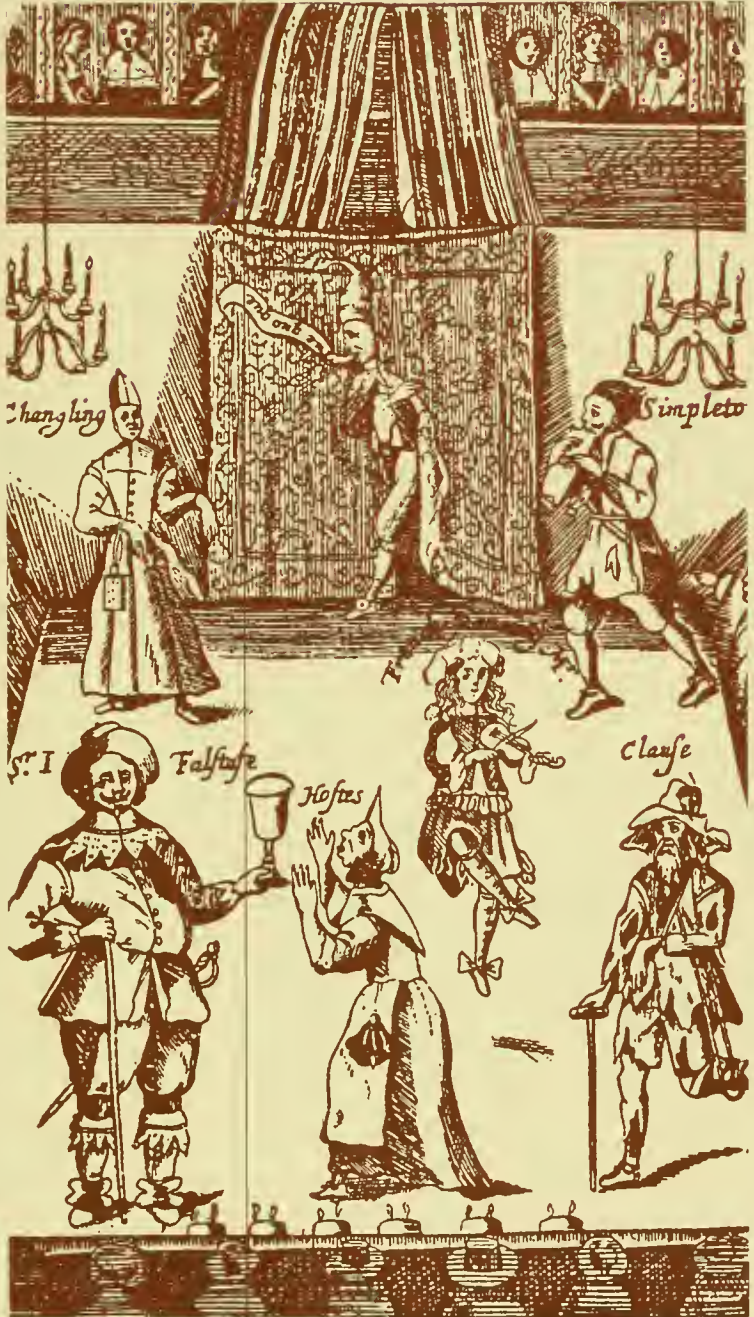 Changling
Simpleto
Sr I Falstafe
Hostes
Clause